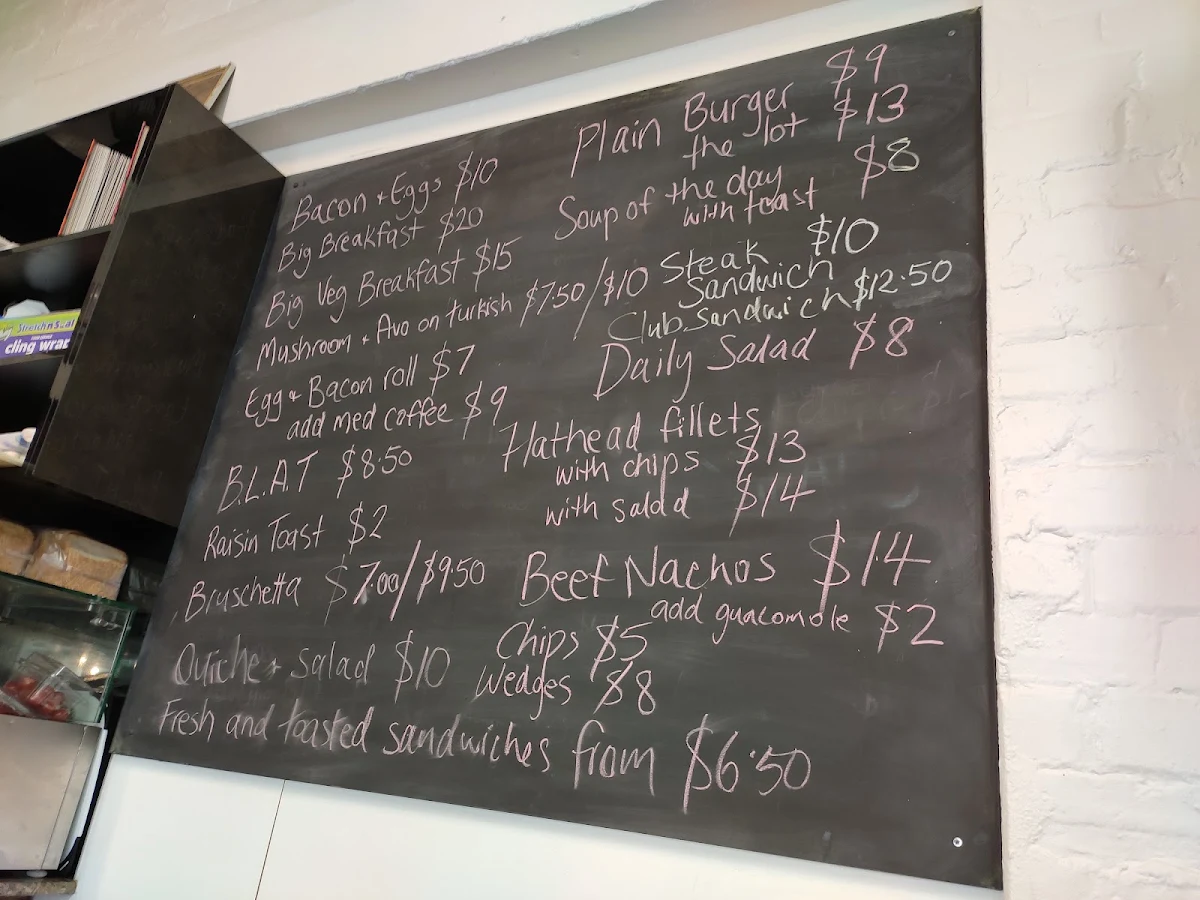 Bacon + Eggs $10
Big Breakfast $20
Big Veg Breakfast $15
Mushroom + Avo on turkish $7.50/$10
Egg & Bacon roll $7
add med coffee $9
B.L.A.T $8.50
Raisin Toast $2
Bruschetta $7.00/$9.50
Quiche + salad $10
Plain Burger $9
the lot $13
Soup of the day $8
with toast
Steak $10
Sandwich
Club Sandwich $12.50
Daily Salad $8
Flathead fillets
with chips $13
with salad $14
Beef Nachos $14
add guacomole $2
Chips $5
Wedges $8
Fresh and toasted sandwiches from $6.50
cling wrap